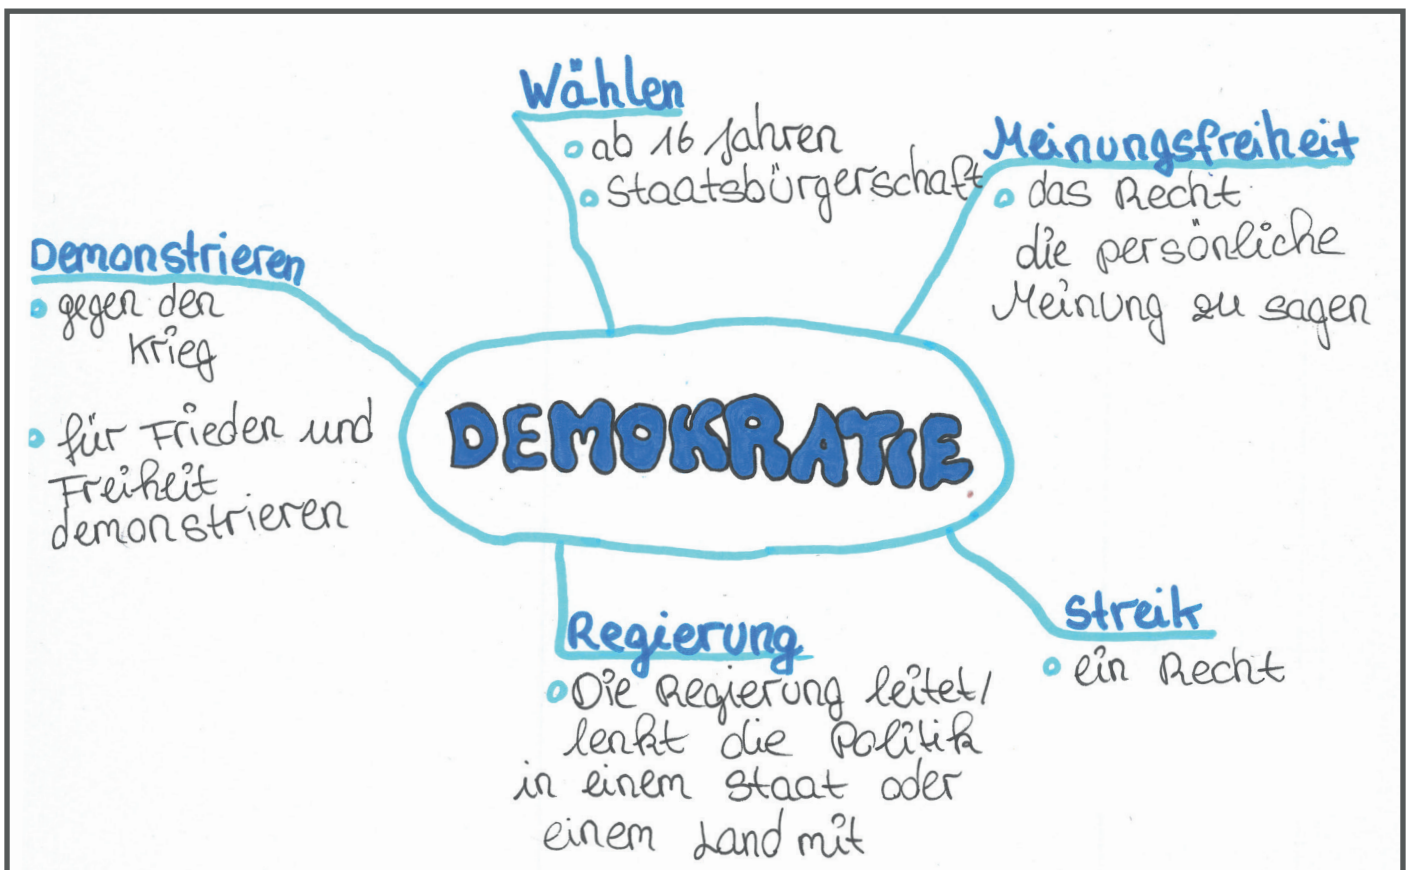 Wählen
ab 16 Jahren
Staatsbürgerschaft
Meinungsfreiheit
das Recht
die persönliche
Meinung zu sagen
Demonstrieren
gegen den
Krieg
für Frieden und
Freiheit
demonstrieren
DEMOKRATIE
Regierung
Die Regierung leitet/
lenkt die Politik
in einem Staat oder
einem Land mit
Streik
ein Recht